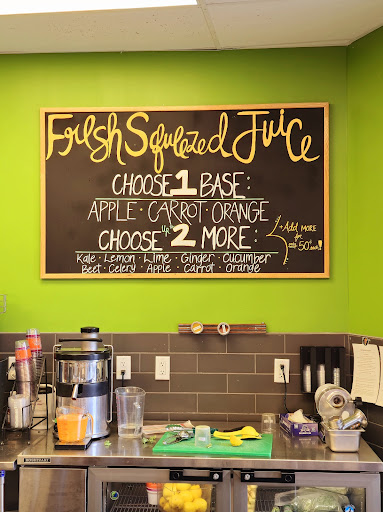 Fresh Squeezed Juice
CHOOSE 1 BASE:
APPLE · CARROT · ORANGE
CHOOSE UP TO 2 MORE:
Kale · Lemon · Lime · Ginger · Cucumber
Beet · Celery · Apple · Carrot · Orange
+Add MORE
for
50¢